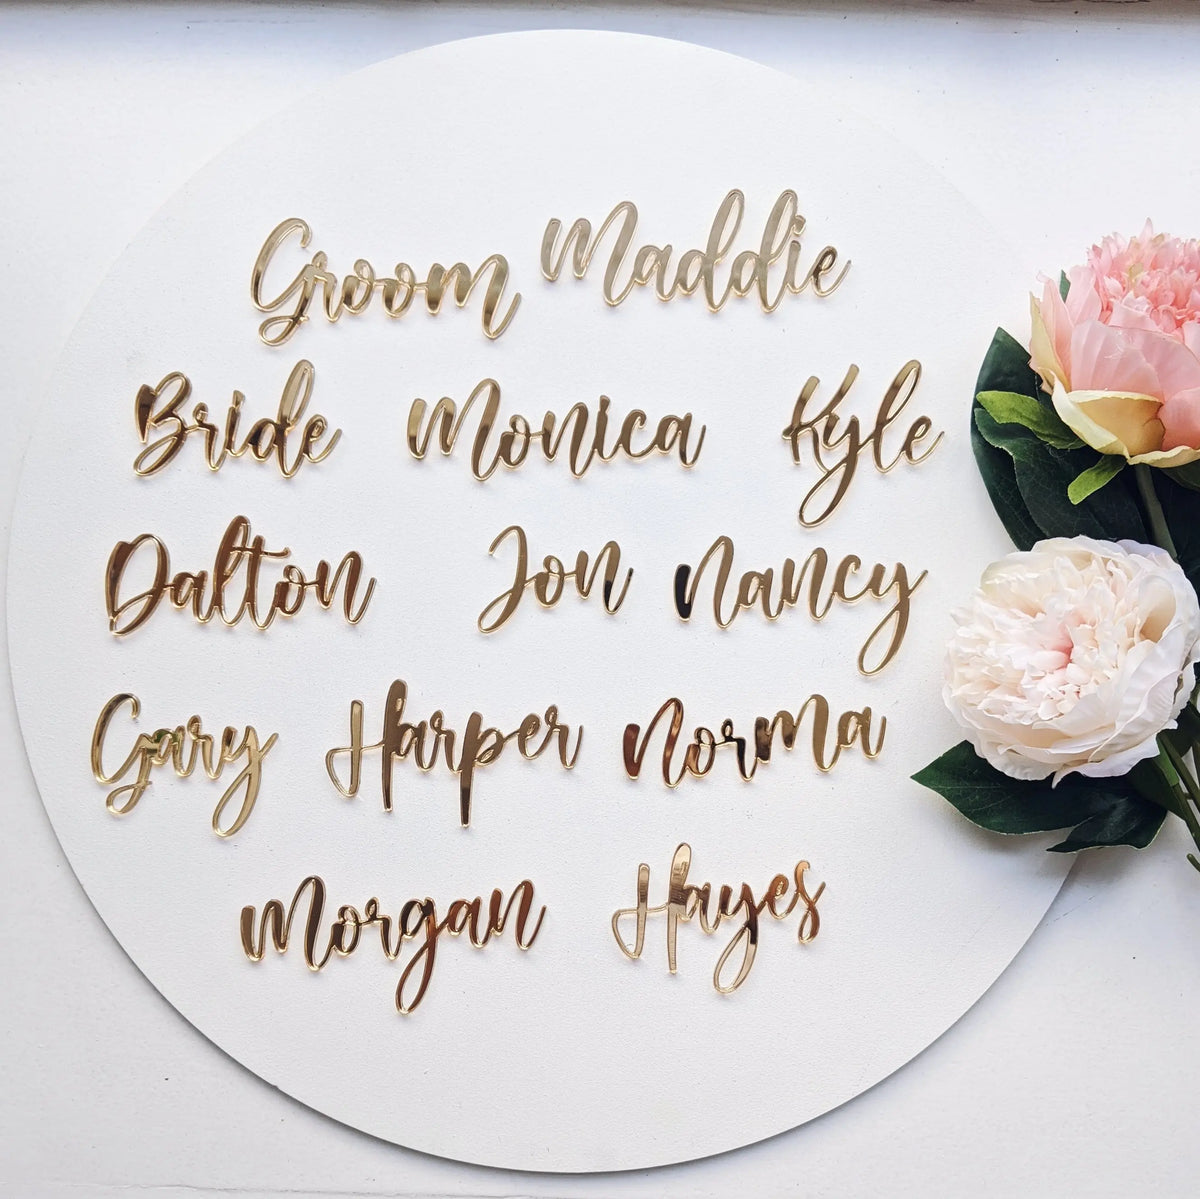 Groom Maddie
Bride Monica Kyle
Dalton Jon Nancy
Gary Harper Norma
Morgan Hayes